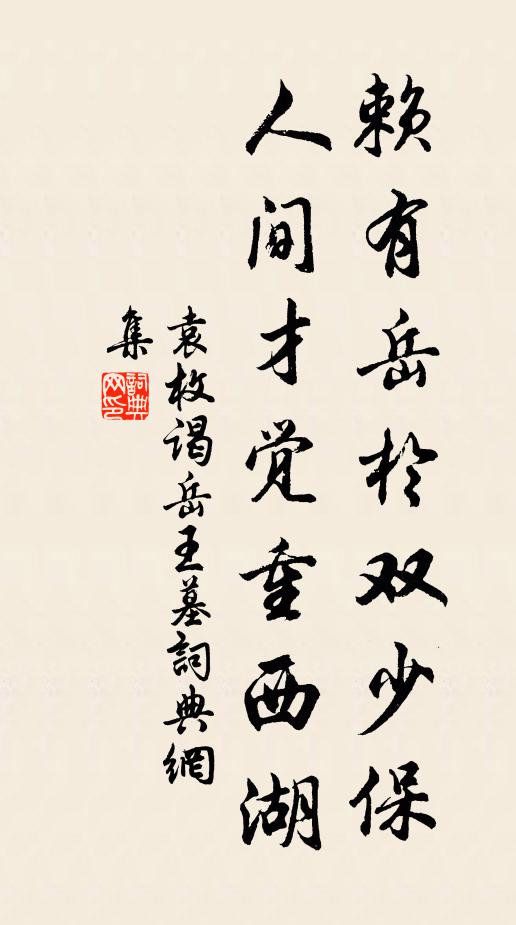 赖有岳於双少保
人间才觉重西湖
袁枚谒岳王墓詞典網
集
詞典网印